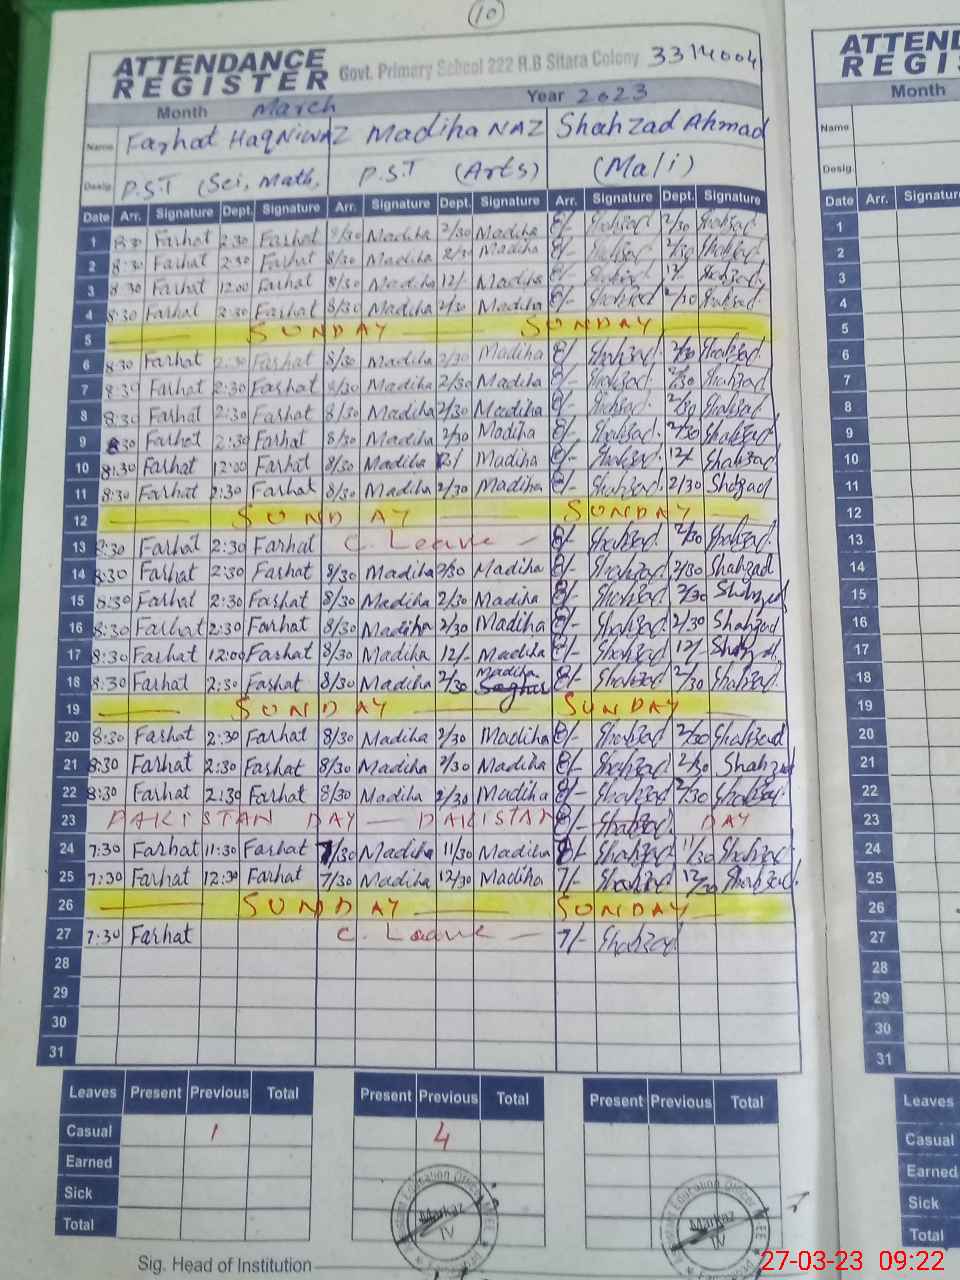 10
ATTENDANCE REGISTER Govt. Primary School 222 R.B Sitara Colony 3314004
Month March Year 2023
Name Farhat Haq Niwaz Madiha NAZ Shahzad Ahmad
Desig. P.S.T (Sci, Math, P.S.T (Arts) (Mali)
Date Arr. Signature Dept. Signature Arr. Signature Dept. Signature Arr. Signature Dept. Signature
1 8:30 Farhat 2:30 Farhat 8/30 Madiha 2/30 Madiha 8/- Shahzad 2/30 Shahzad
2 8:30 Farhat 2:30 Farhat 8/30 Madiha 2/30 Madiha 8/- Shahzad 2/30 Shahzad
3 8:30 Farhat 12:00 Farhat 8/30 Madiha 12/- Madiha 8/- Shahzad 12/- Shahzad
4 8:30 Farhat 2:30 Farhat 8/30 Madiha 2/30 Madiha 8/- Shahzad 2/30 Shahzad
5 SUNDAY SUNDAY
6 8:30 Farhat 2:30 Farhat 8/30 Madiha 2/30 Madiha 8/- Shahzad 2/30 Shahzad
7 8:30 Farhat 2:30 Farhat 8/30 Madiha 2/30 Madiha 8/- Shahzad 2/30 Shahzad
8 8:30 Farhat 2:30 Farhat 8/30 Madiha 2/30 Madiha 8/- Shahzad 2/30 Shahzad
9 8:30 Farhat 2:30 Farhat 8/30 Madiha 2/30 Madiha 8/- Shahzad 2/30 Shahzad
10 8:30 Farhat 12:00 Farhat 8/30 Madiha 12/ Madiha 8/- Shahzad 12/ Shahzad
11 8:30 Farhat 2:30 Farhat 8/30 Madiha 2/30 Madiha 8/- Shahzad 2/30 Shahzad
12 SUNDAY SUNDAY
13 8:30 Farhat 2:30 Farhat C. Leave 8/- Shahzad 2/30 Shahzad
14 8:30 Farhat 2:30 Farhat 8/30 Madiha 2/30 Madiha 8/- Shahzad 2/30 Shahzad
15 8:30 Farhat 2:30 Farhat 8/30 Madiha 2/30 Madiha 8/- Shahzad 2/30 Shahzad
16 8:30 Farhat 2:30 Farhat 8/30 Madiha 2/30 Madiha 8/- Shahzad 2/30 Shahzad
17 8:30 Farhat 12:00 Farhat 8/30 Madiha 12/- Madiha 8/- Shahzad 12/- Shahzad
18 8:30 Farhat 2:30 Farhat 8/30 Madiha 2/30 Madiha 8/- Shahzad 2/30 Shahzad
19 SUNDAY SUNDAY
20 8:30 Farhat 2:30 Farhat 8/30 Madiha 2/30 Madiha 8/- Shahzad 2/30 Shahzad
21 8:30 Farhat 2:30 Farhat 8/30 Madiha 2/30 Madiha 8/- Shahzad 2/30 Shahzad
22 8:30 Farhat 2:30 Farhat 8/30 Madiha 2/30 Madiha 8/- Shahzad 2/30 Shahzad
23 PAKISTAN DAY — PAKISTAN 8/- Shahzad DAY
24 7:30 Farhat 11:30 Farhat 7/30 Madiha 11/30 Madiha 8/- Shahzad 11/30 Shahzad
25 7:30 Farhat 12:30 Farhat 7/30 Madiha 12/30 Madiha 7/- Shahzad 12/30 Shahzad
26 SUNDAY SUNDAY
27 7:30 Farhat C. Leave 7/- Shahzad
28
29
30
31
Leaves Present Previous Total Present Previous Total Present Previous Total
Casual 1 4
Earned
Sick
Total
Markaz IV
Markaz IV
Sig. Head of Institution
ATTEND
REGIS
Month
Name
Desig.
Date Arr. Signature
1
2
3
4
5
6
7
8
9
10
11
12
13
14
15
16
17
18
19
20
21
22
23
24
25
26
27
28
29
30
31
Leaves
Casual
Earned
Sick
Total
27-03-23 09:22